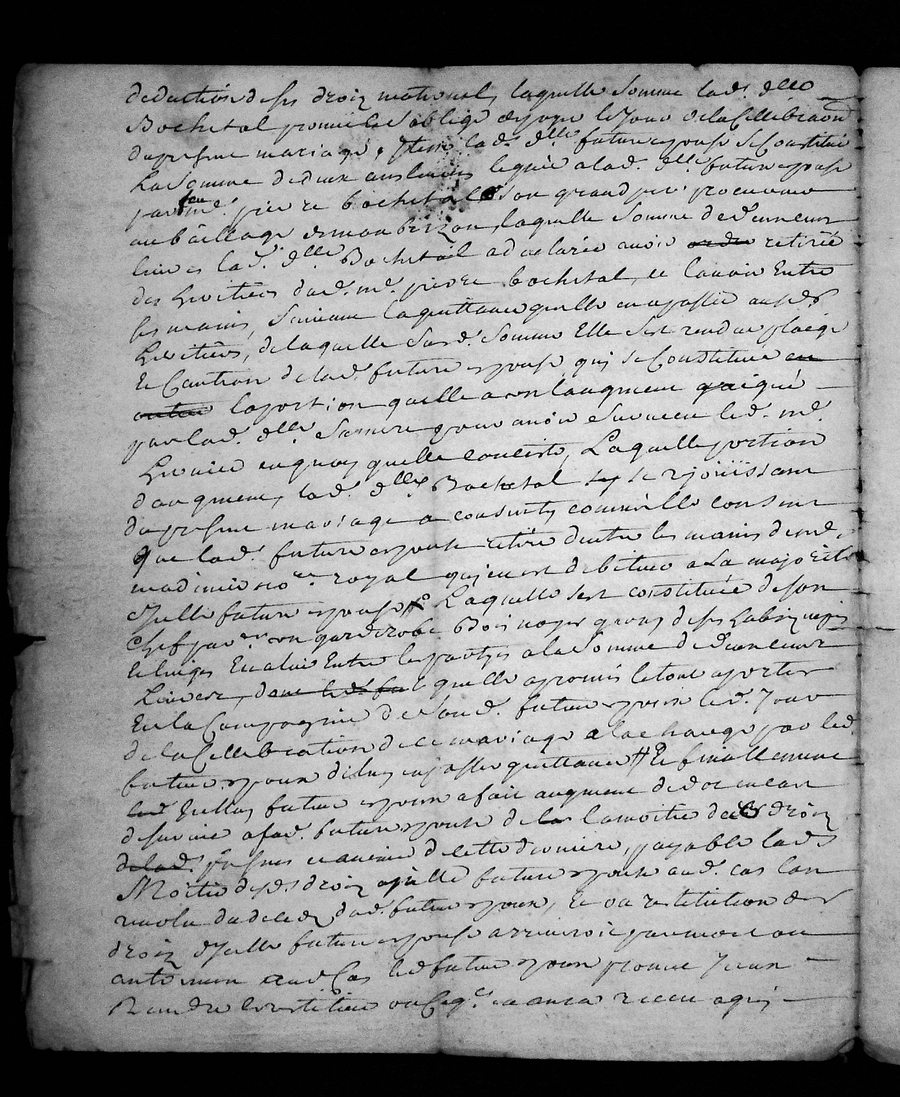 deduction de ses droiz maternels, laquelle somme lad. dlle
Bochetal promet et s'oblige de payer le jour de la cellebraon
du present mariage, Item lad. dlle future espouse se constitue
la somme de deux cens livres leguée a lad. dlle future espouse
par feu me. pierre bochetal son grand pere procureur
au bailliage de montbrizon, laquelle somme de deux cens
livres lad. dlle Bochetail a declarée avoir retirée
des heritiers dud. me. pierre bochetal, et l'avoir entre
ses mains, suivant la quittance qu'elle en a passée ausd.
heritiers, de laquelle susd. somme Elle s'est rendue pleige
et Caution de lad. future espouse, qui se Constitue en
outre la portion qu'elle a en l'augment gaigné
par lad. dlle sa mere pour avoir survescu led. me.
en quoy qu'elle consiste, Laquelle portion
d'augment, lad. dlle Bochetal se rejouissant
du present mariage a consenty comme elle consent
que lad. future espouse retire d'entre les mains de me.
nore. royal qui en est debiteur a La majorité
d'icelle future espouse Laquelle s'est constituée de son
Chef un garderobe Bois noyer garny de ses habiz
et linges Evalué Entre les partyes a la somme de deux cens
Livres, dont led. fut qu'elle a promis le tout aporter
En la Compagnie de sond. futur espoux led. Jour
de la Cellebration de ce mariage a la charge par led.
futur espoux de luy en passer quittance Et finallement
led. futur espoux a fait augment de dot en cas
de survie a sad. future espouse de la moitié de ses droiz
de lad. qu'avenir de cette derniere, payable lad.
Moitié desd. droiz a icelle future espouse aud. cas l'an
revolu du deces dud. futur espoux, Et ou restitution des
droiz d'icelle future espouse arriveroit par mort ou
autrement aud. Cas led. futur espoux promet Iceux
Rendre et restituer ou Ce qu'il en aura receu apres